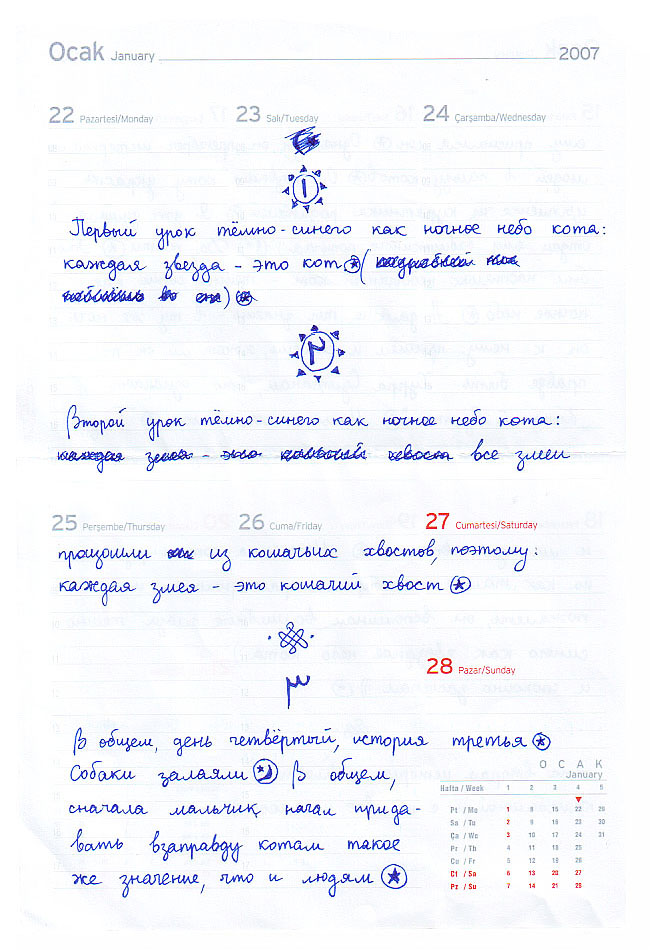 Ocak January 2007
22 Pazartesi/Monday 23 Salı/Tuesday 24 Çarşamba/Wednesday
1
Первый урок тёмно-синего как ночное небо кота:
каждая звезда - это кот (
)
٢
Второй урок тёмно-синего как ночное небо кота:
каждая змея - это кошачий хвост все змеи
25 Perşembe/Thursday 26 Cuma/Friday 27 Cumartesi/Saturday
произошли из кошачьих хвостов, поэтому:
каждая змея - это кошачий хвост
28 Pazar/Sunday
٣
В общем, день четвёртый, история третья
Собаки залаяли В общем,
сначала мальчик начал прида-
вать взаправду котам такое
же значение, что и людям
O C A K
January
Hafta / Week 1 2 3 4 5
Pt / Mo 1 8 15 22 29
Sa / Tu 2 9 16 23 30
Ça / We 3 10 17 24 31
Pr / Th 4 11 18 25
Cu / Fr 5 12 19 26
Ct / Sa 6 13 20 27
Pz / Su 7 14 21 28